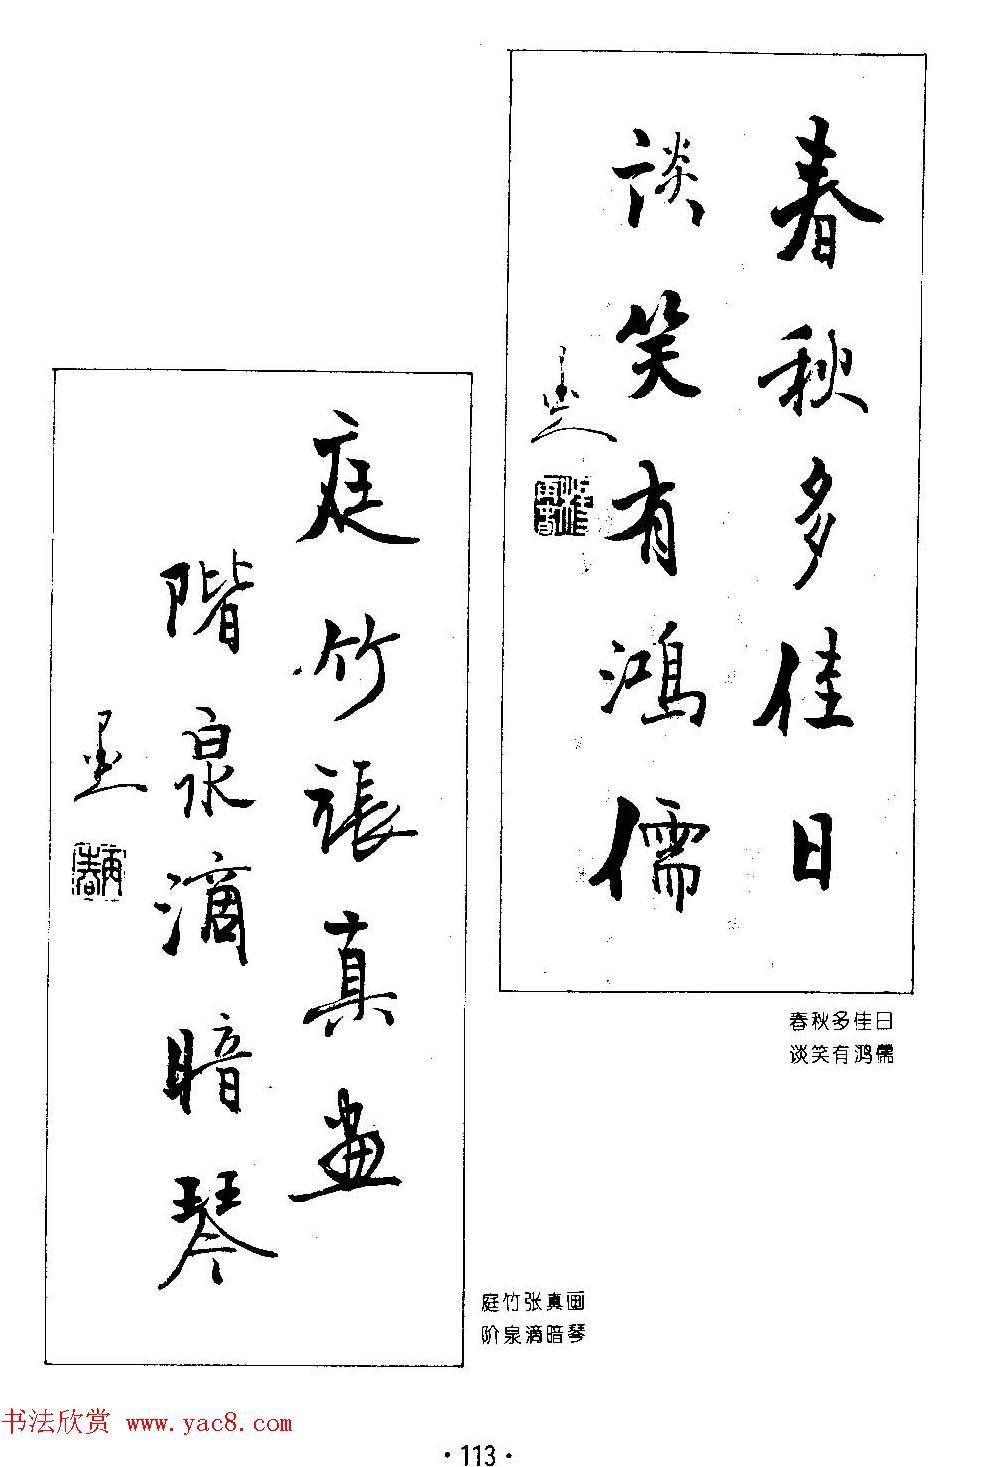 春秋多佳日
談笑有鴻儒
春秋多佳日
谈笑有鸿儒
庭竹張真畫
階泉滴暗琴
庭竹张真画
阶泉滴暗琴
书法欣赏 www.yac8.com
·113·